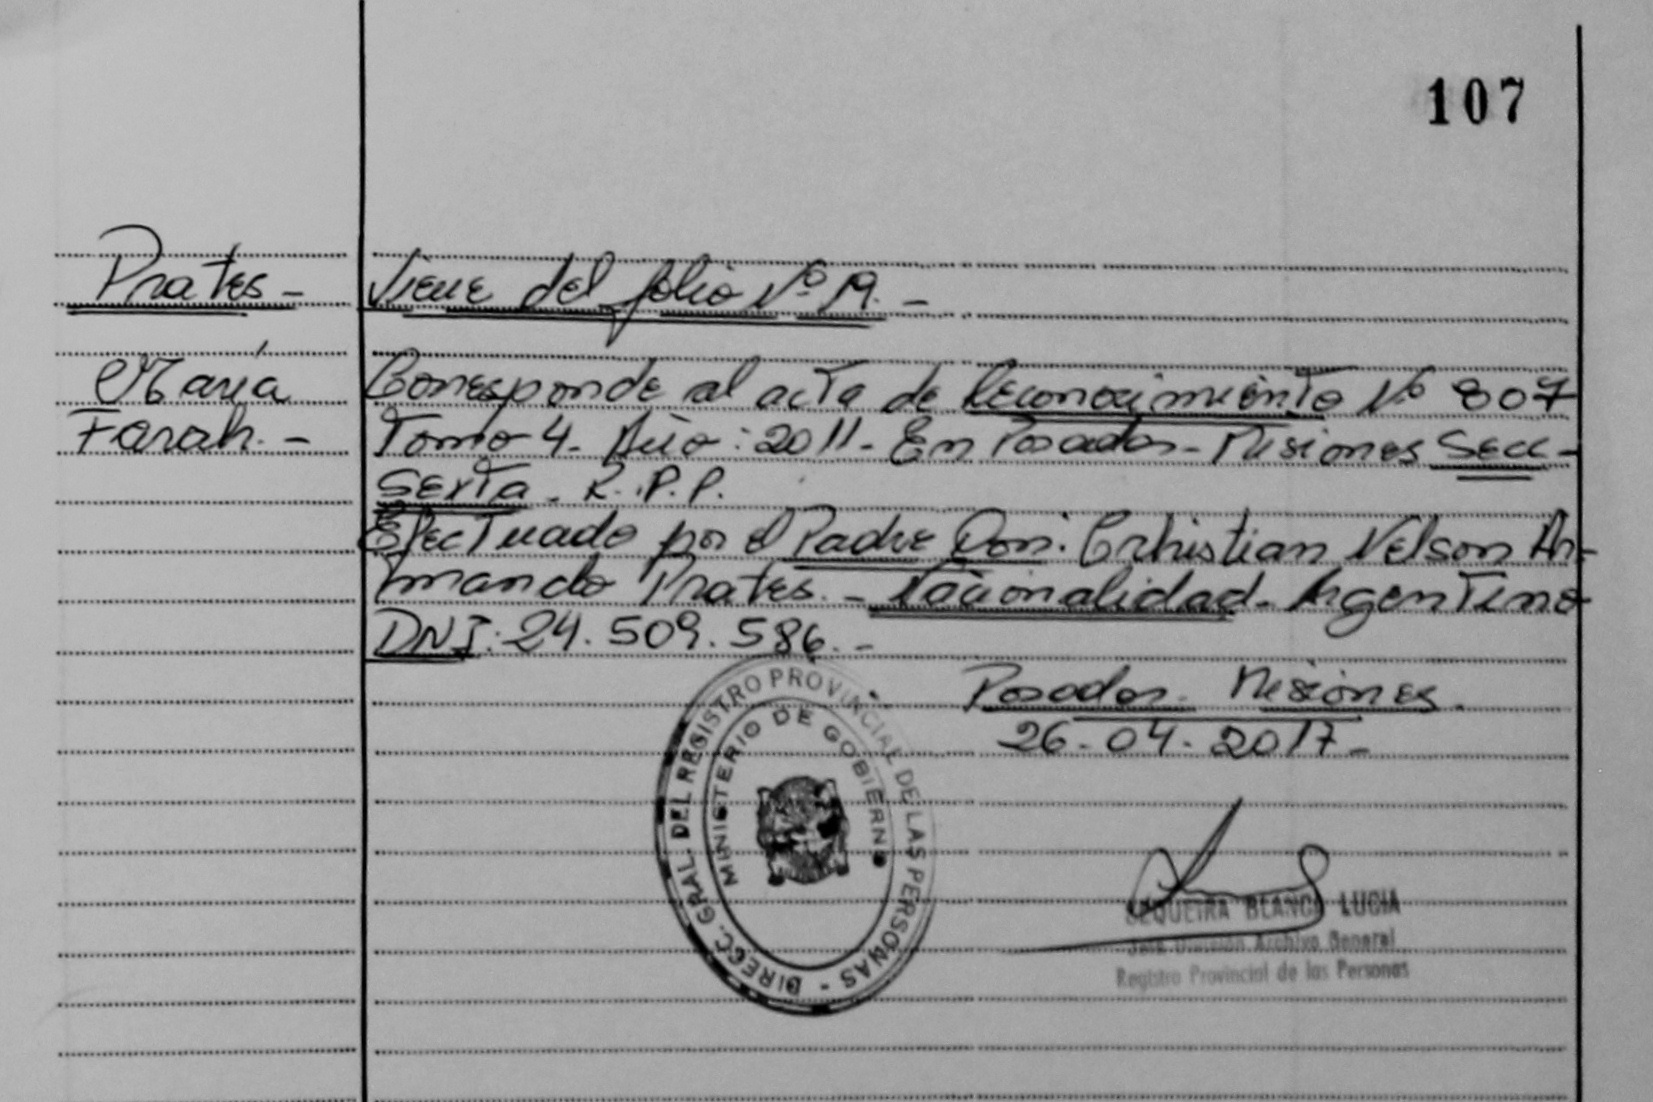 107
Prates- Viene del folio Nº 19.-
María Corresponde al acta de Reconocimiento Nº 807
Farah.- Tomo 4- Año: 2011- En Posadas- Misiones Secc-
Sexta- R.P.P.
Efectuado por el Padre Don: Crhistian Nelson Ar-
mando Prates.- Nacionalidad- Argentino
DNI: 24.509.586.-
Posadas- Misiones.
26-04-2017-
DIRECC. GRAL. DEL REGISTRO PROVINCIAL DE LAS PERSONAS -
MINISTERIO DE GOBIERNO
SEQUEIRA BLANCA LUCIA
Jefe División Archivo General
Registro Provincial de las Personas